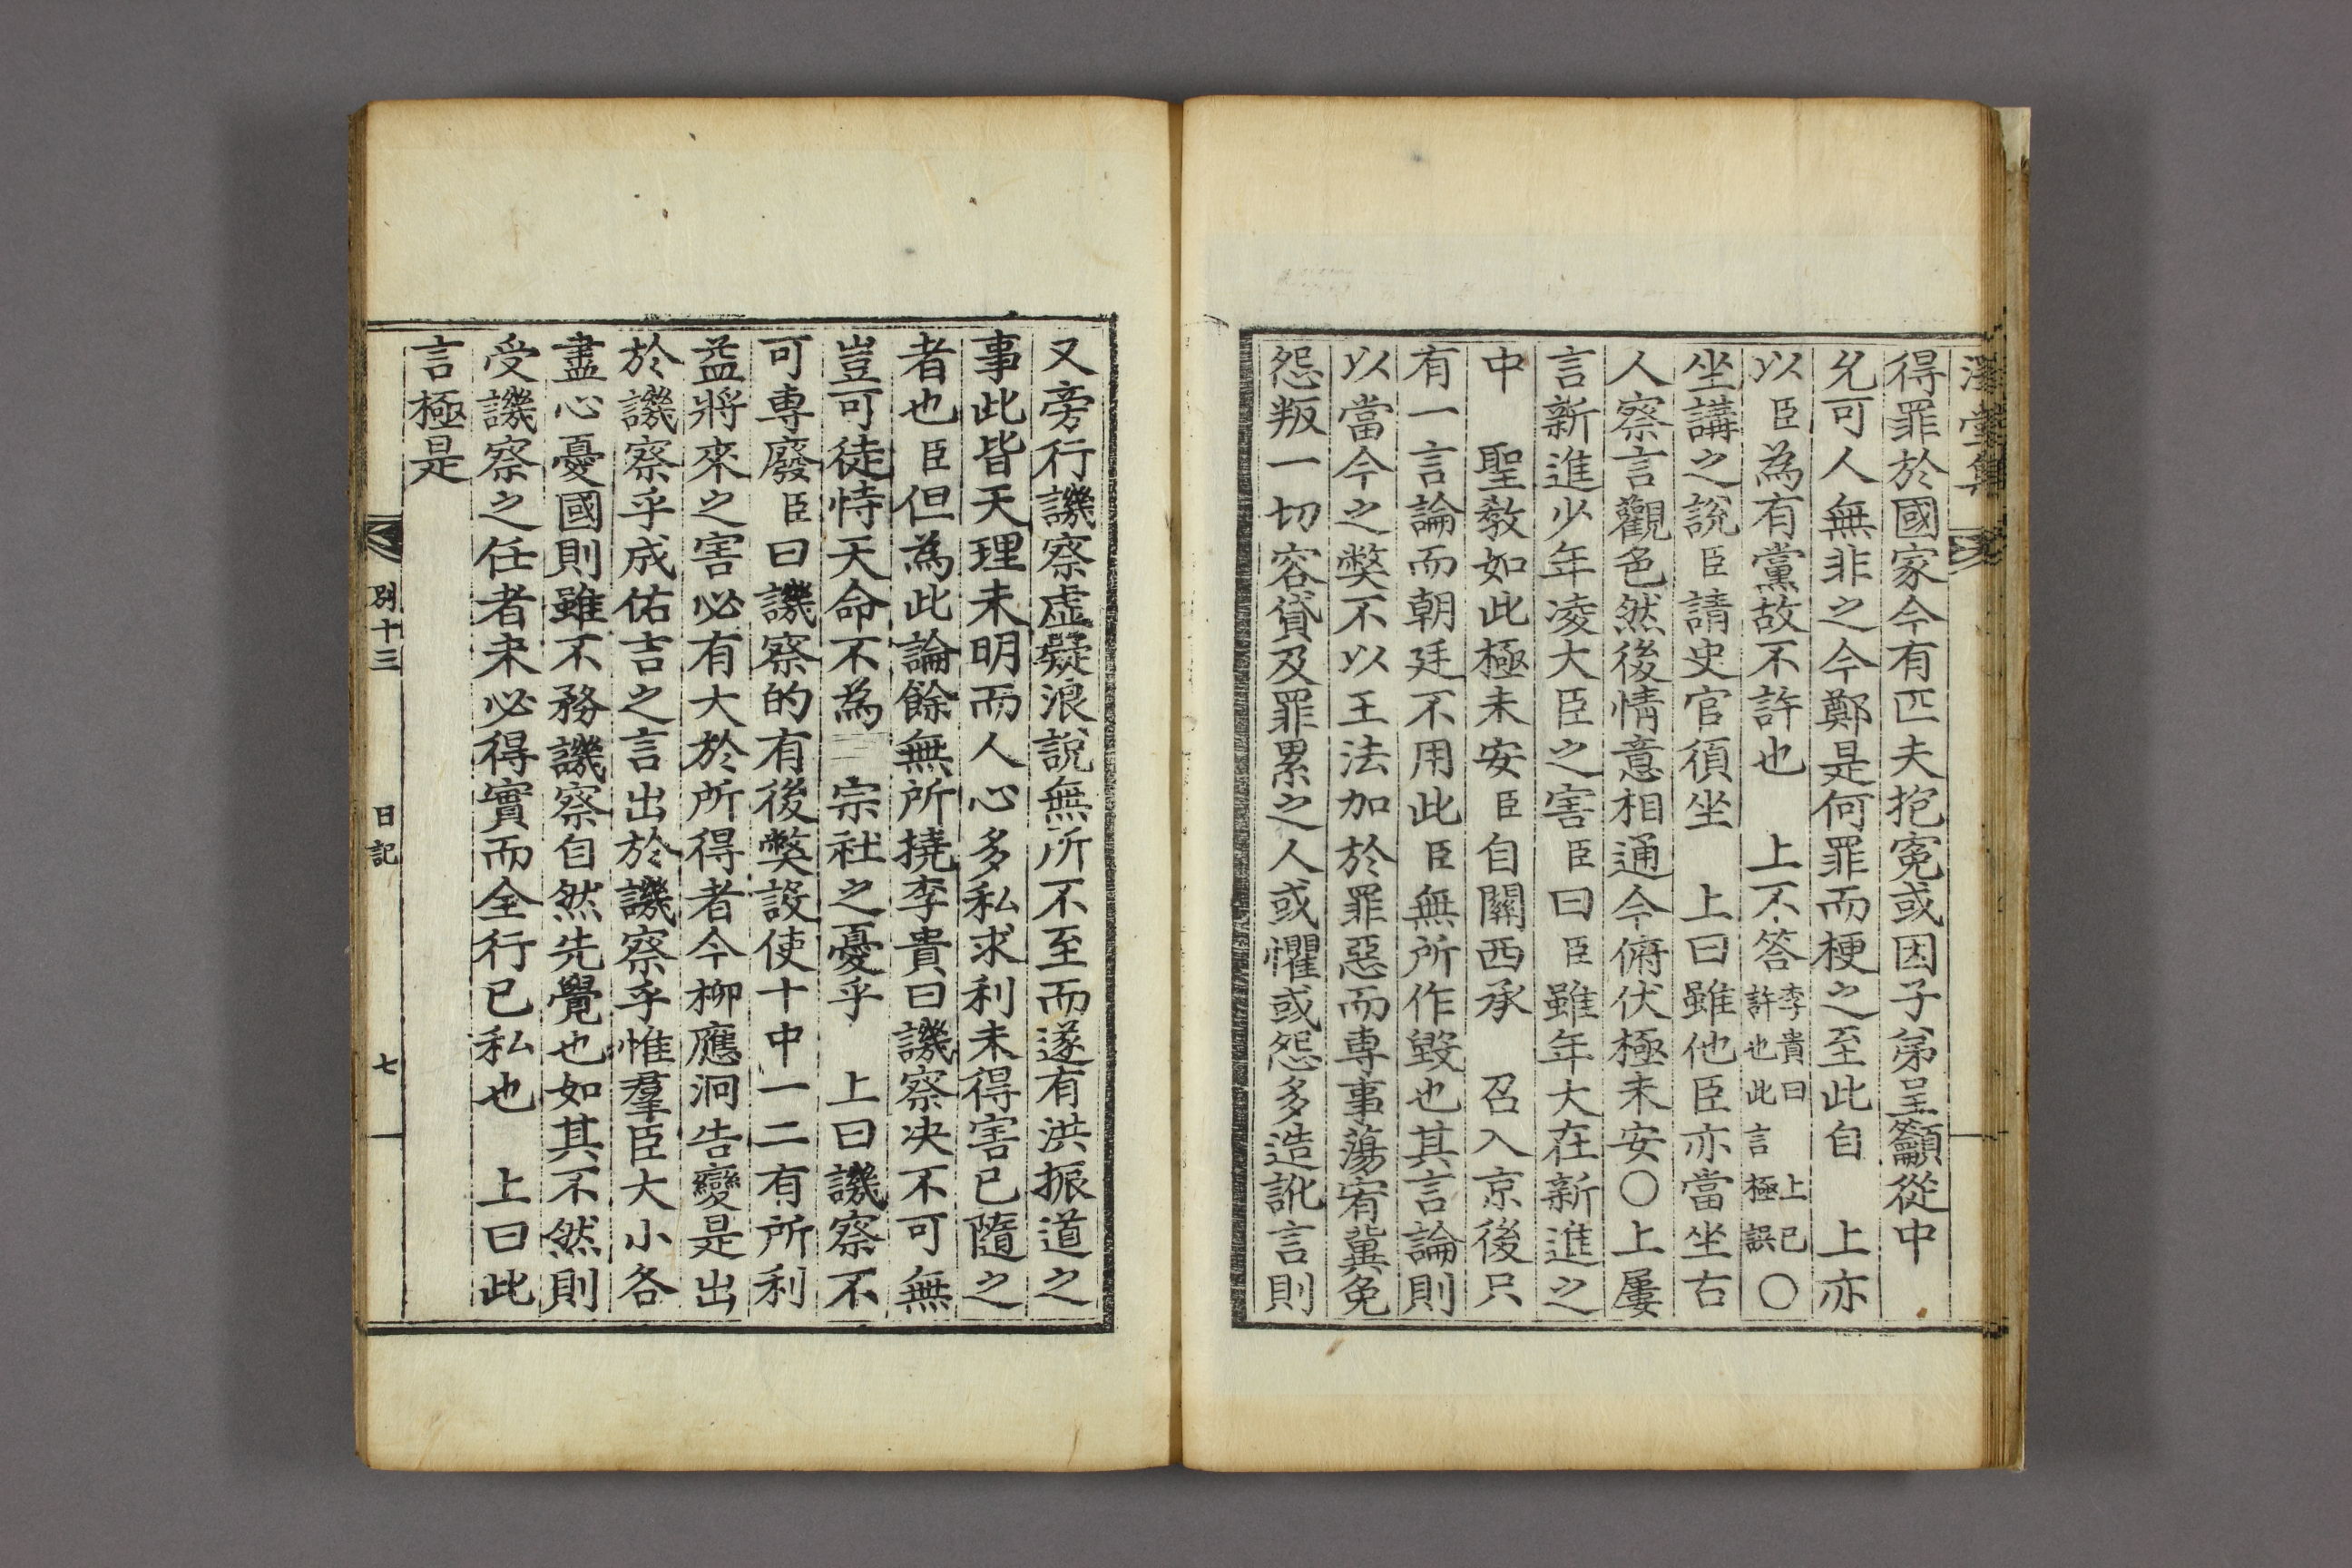 溪堂集
得罪於國家今有匹夫抱寃或因子弟呈籲從中
允可人無非之今鄭是何罪而梗之至此自　上亦
以臣為有黨故不許也　上不答李貴曰　上已許也此言極誤〇
坐講之說臣請史官須坐　上曰雖他臣亦當坐右
人察言觀色然後情意相通今俯伏極未安〇上屢
言新進少年凌大臣之害臣曰臣雖年大在新進之
中　聖敎如此極未安臣自關西承　召入京後只
有一言論而朝廷不用此臣無所作毀也其言論則
以當今之獘不以王法加於罪惡而專事蕩宥冀免
怨叛一切容貸及罪累之人或懼或怨多造訛言則
又旁行譏察虛疑浪說無所不至而遂有洪振道之
事此皆天理未明而人心多私求利未得害已隨之
者也臣但為此論餘無所撓李貴曰譏察决不可無
豈可徒恃天命不為　宗社之憂乎　上曰譏察不
可專廢臣曰譏察的有後獘設使十中一二有所利
益將來之害必有大於所得者今柳應泂告變是出
於譏察乎成佑吉之言出於譏察乎惟羣臣大小各
盡心憂國則雖不務譏察自然先覺也如其不然則
受譏察之任者未必得實而全行已私也　上曰此
言極是
別十三　日記　七